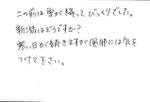 この前は雪が降って、びっくりでした。
新潟はどうですか?
寒い日が続きますが風邪には気を
つけて下さい。